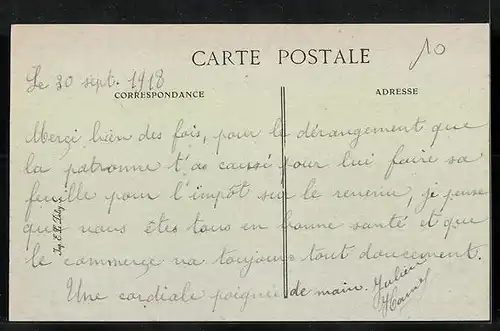 10
CARTE POSTALE
Le 30 sept. 1918
CORRESPONDANCE
ADRESSE
Merci bien des fois, pour le dérangement que
la patronne t'as causé pour lui faire sa
feuille pour l'impôt sur le revenu, je pense
que vous êtes tous en bonne santé et que
le commerce va toujours tout doucement.
Une cordiale poignée de main. Julien